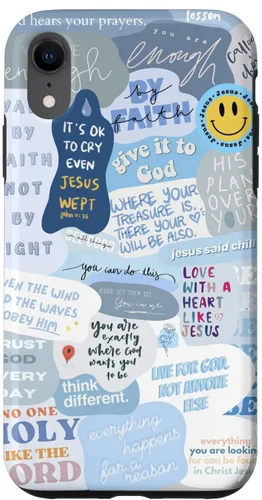 d hears your prayers.
lesson
you are
enough
enough
called
by
faith
BY
FAITH
Jesus • Jesus • Jesus • Jesus
WALK
BY
FAITH
NOT
BY
SIGHT
IT'S OK
TO CRY
EVEN
JESUS
WEPT
John 11:35
give it to
God
HIS
PLAN
OVER
YOUR
WHERE YOUR
TREASURE IS,
THERE YOUR ♡
WILL BE ALSO.
in all things
jesus said chill
you can do this
EVEN THE WIND
AND THE WAVES
OBEY HIM
JESUS LET THEM SEE
You in me
LOVE
WITH A
HEART
LIKE
JESUS
you are
exactly
where God
wants you
to be
TRUST
GOD
EVERY
DAY
think
different.
LIVE FOR GOD,
NOT ANYONE
ELSE
NO ONE
HOLY
LIKE THE
LORD
everything
happens
for a
reason
everything
you are lookin
for can be foun
in Christ Jesu